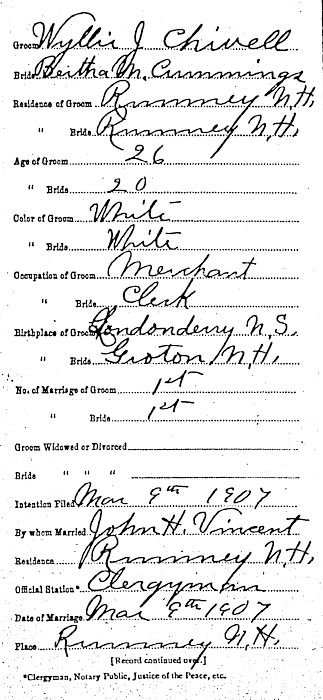 Groom Wyllie J Chivell
Bride Bertha M. Cummings
Residence of Groom Rumney N.H.
" Bride Rumney N.H.
Age of Groom 26
" Bride 20
Color of Groom White
" Bride White
Occupation of Groom Merchant
" Bride Clerk
Birthplace of Groom Londonderry N.S.
" Bride Groton N.H.
No. of Marriage of Groom 1st
" Bride 1st
Groom Widowed or Divorced
Bride " " "
Intention Filed Mar 9th 1907
By whom Married John H. Vincent
Residence Rumney N.H.
Official Station* Clergyman
Date of Marriage Mar 9th 1907
Place Rumney N.H.
[Record continued over.]
*Clergyman, Notary Public, Justice of the Peace, etc.